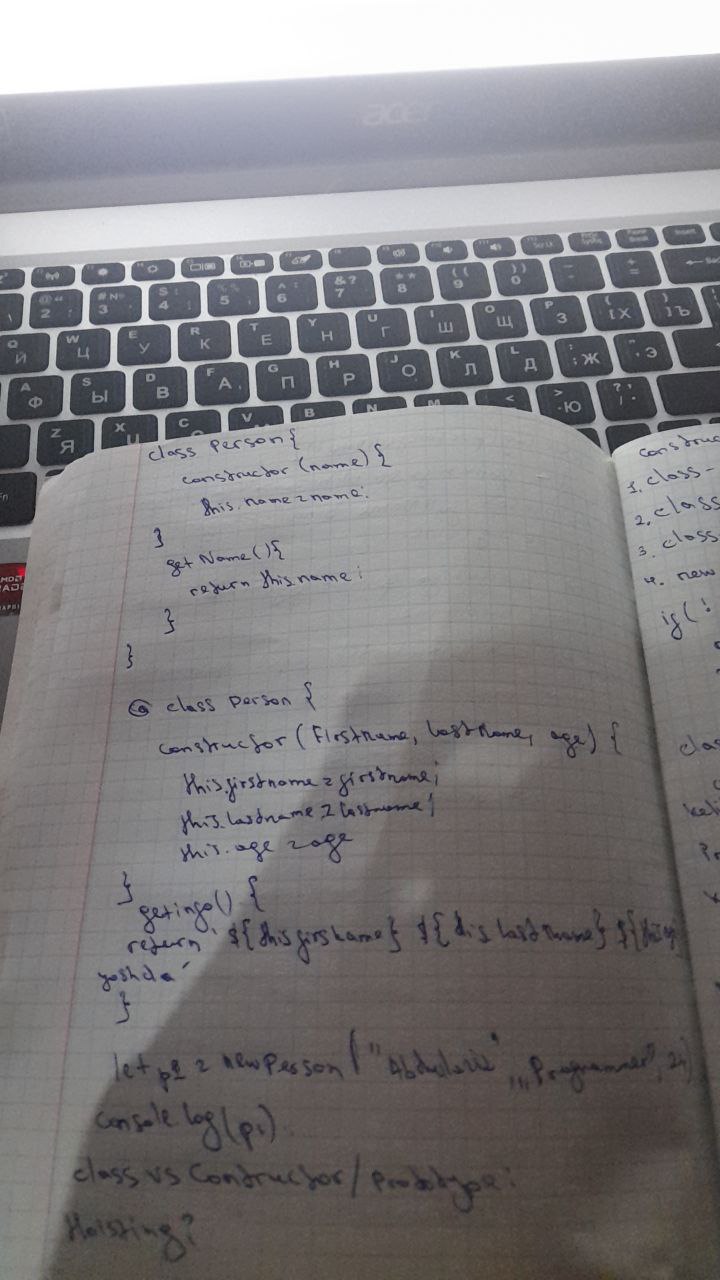 acer
& ?
7
* *
8
( (
9
) )
0
^ :
6
5
$ ;
4
# №
3
@ "
2
Q Й
W Ц
E У
R К
T Е
Y Н
U Г
I Ш
O Щ
P З
[ Х
] Ъ
A Ф
S Ы
D В
F А
G П
H Р
J О
K Л
L Д
; Ж
" Э
Z Я
X
C
V
B
N
M
<
> Ю
class Person {
constructor (name) {
this.name = name;
}
getName() {
return this name;
}
}
class person {
constructor (firstname, lastname, age) {
this.firstname = firstname;
this.lastname = lastname;
this.age = age
}
getinfo() {
return ` ${this firstname} ${this lastname} ${this
yoshda `
}
let = new Person (
console log(p1)
class vs Contructor / prototype:
Hoisting?
1. class -
2. class
3. class
4. new
if( !